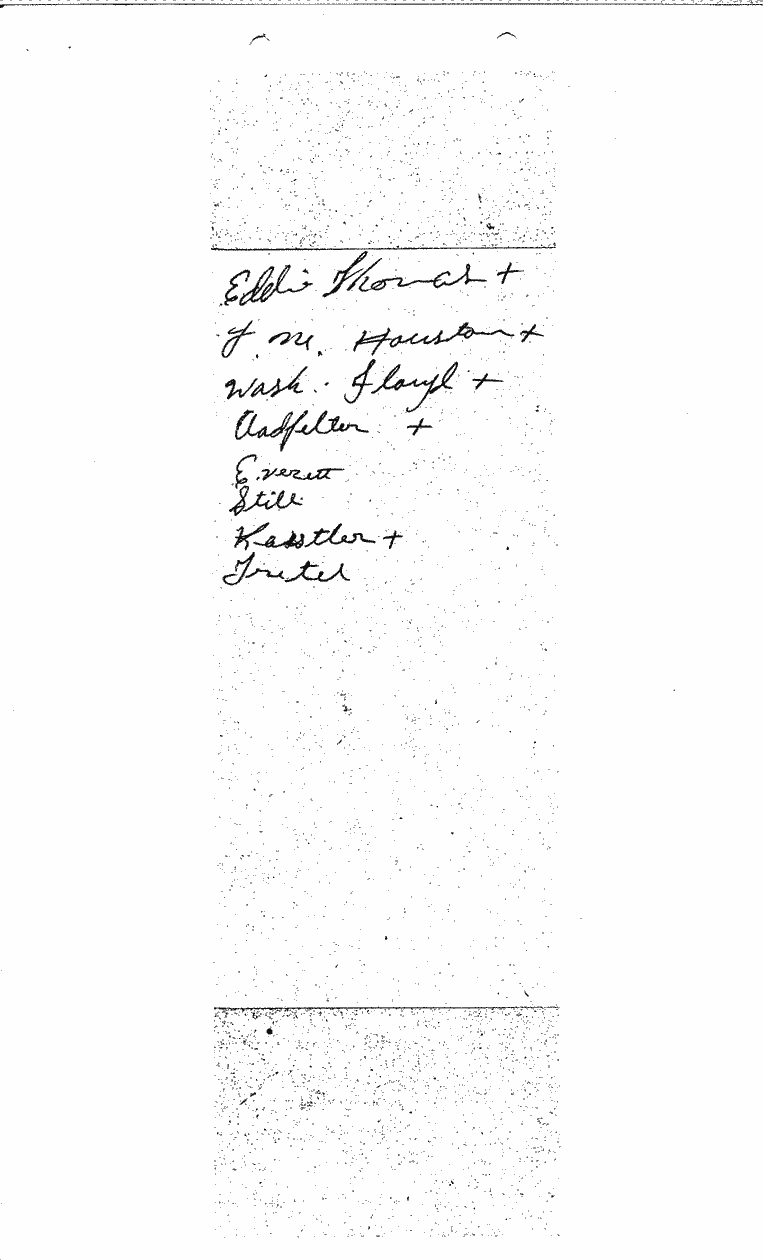 Eddie Thomas +
J. M. Houston +
Wash. Floyd +
+
Everett
Still
Kasstler +